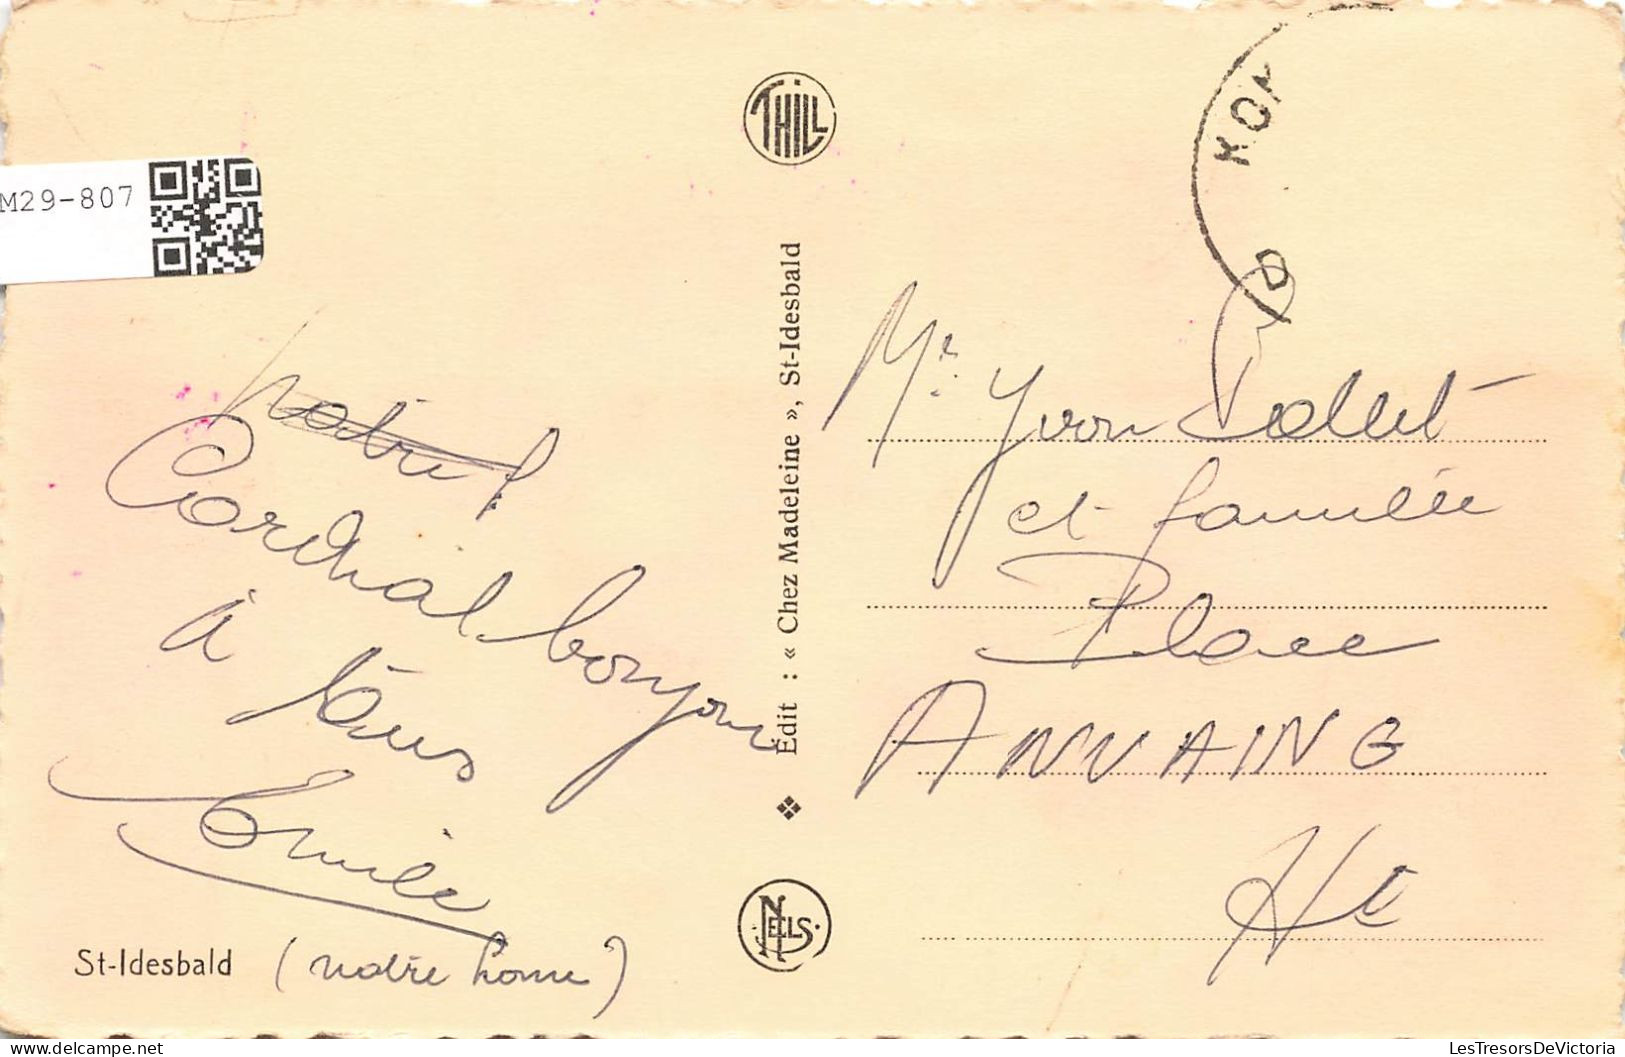 M29-807
THILL
KOK
D
Édit : « Chez Madeleine », St-Idesbald
NELS
Cordial bonjour
à tous
Emile
St-Idesbald (notre home)
Mr. Yvon
et famille
Place
ANVAING
Ht
LesTresorsDeVictoria